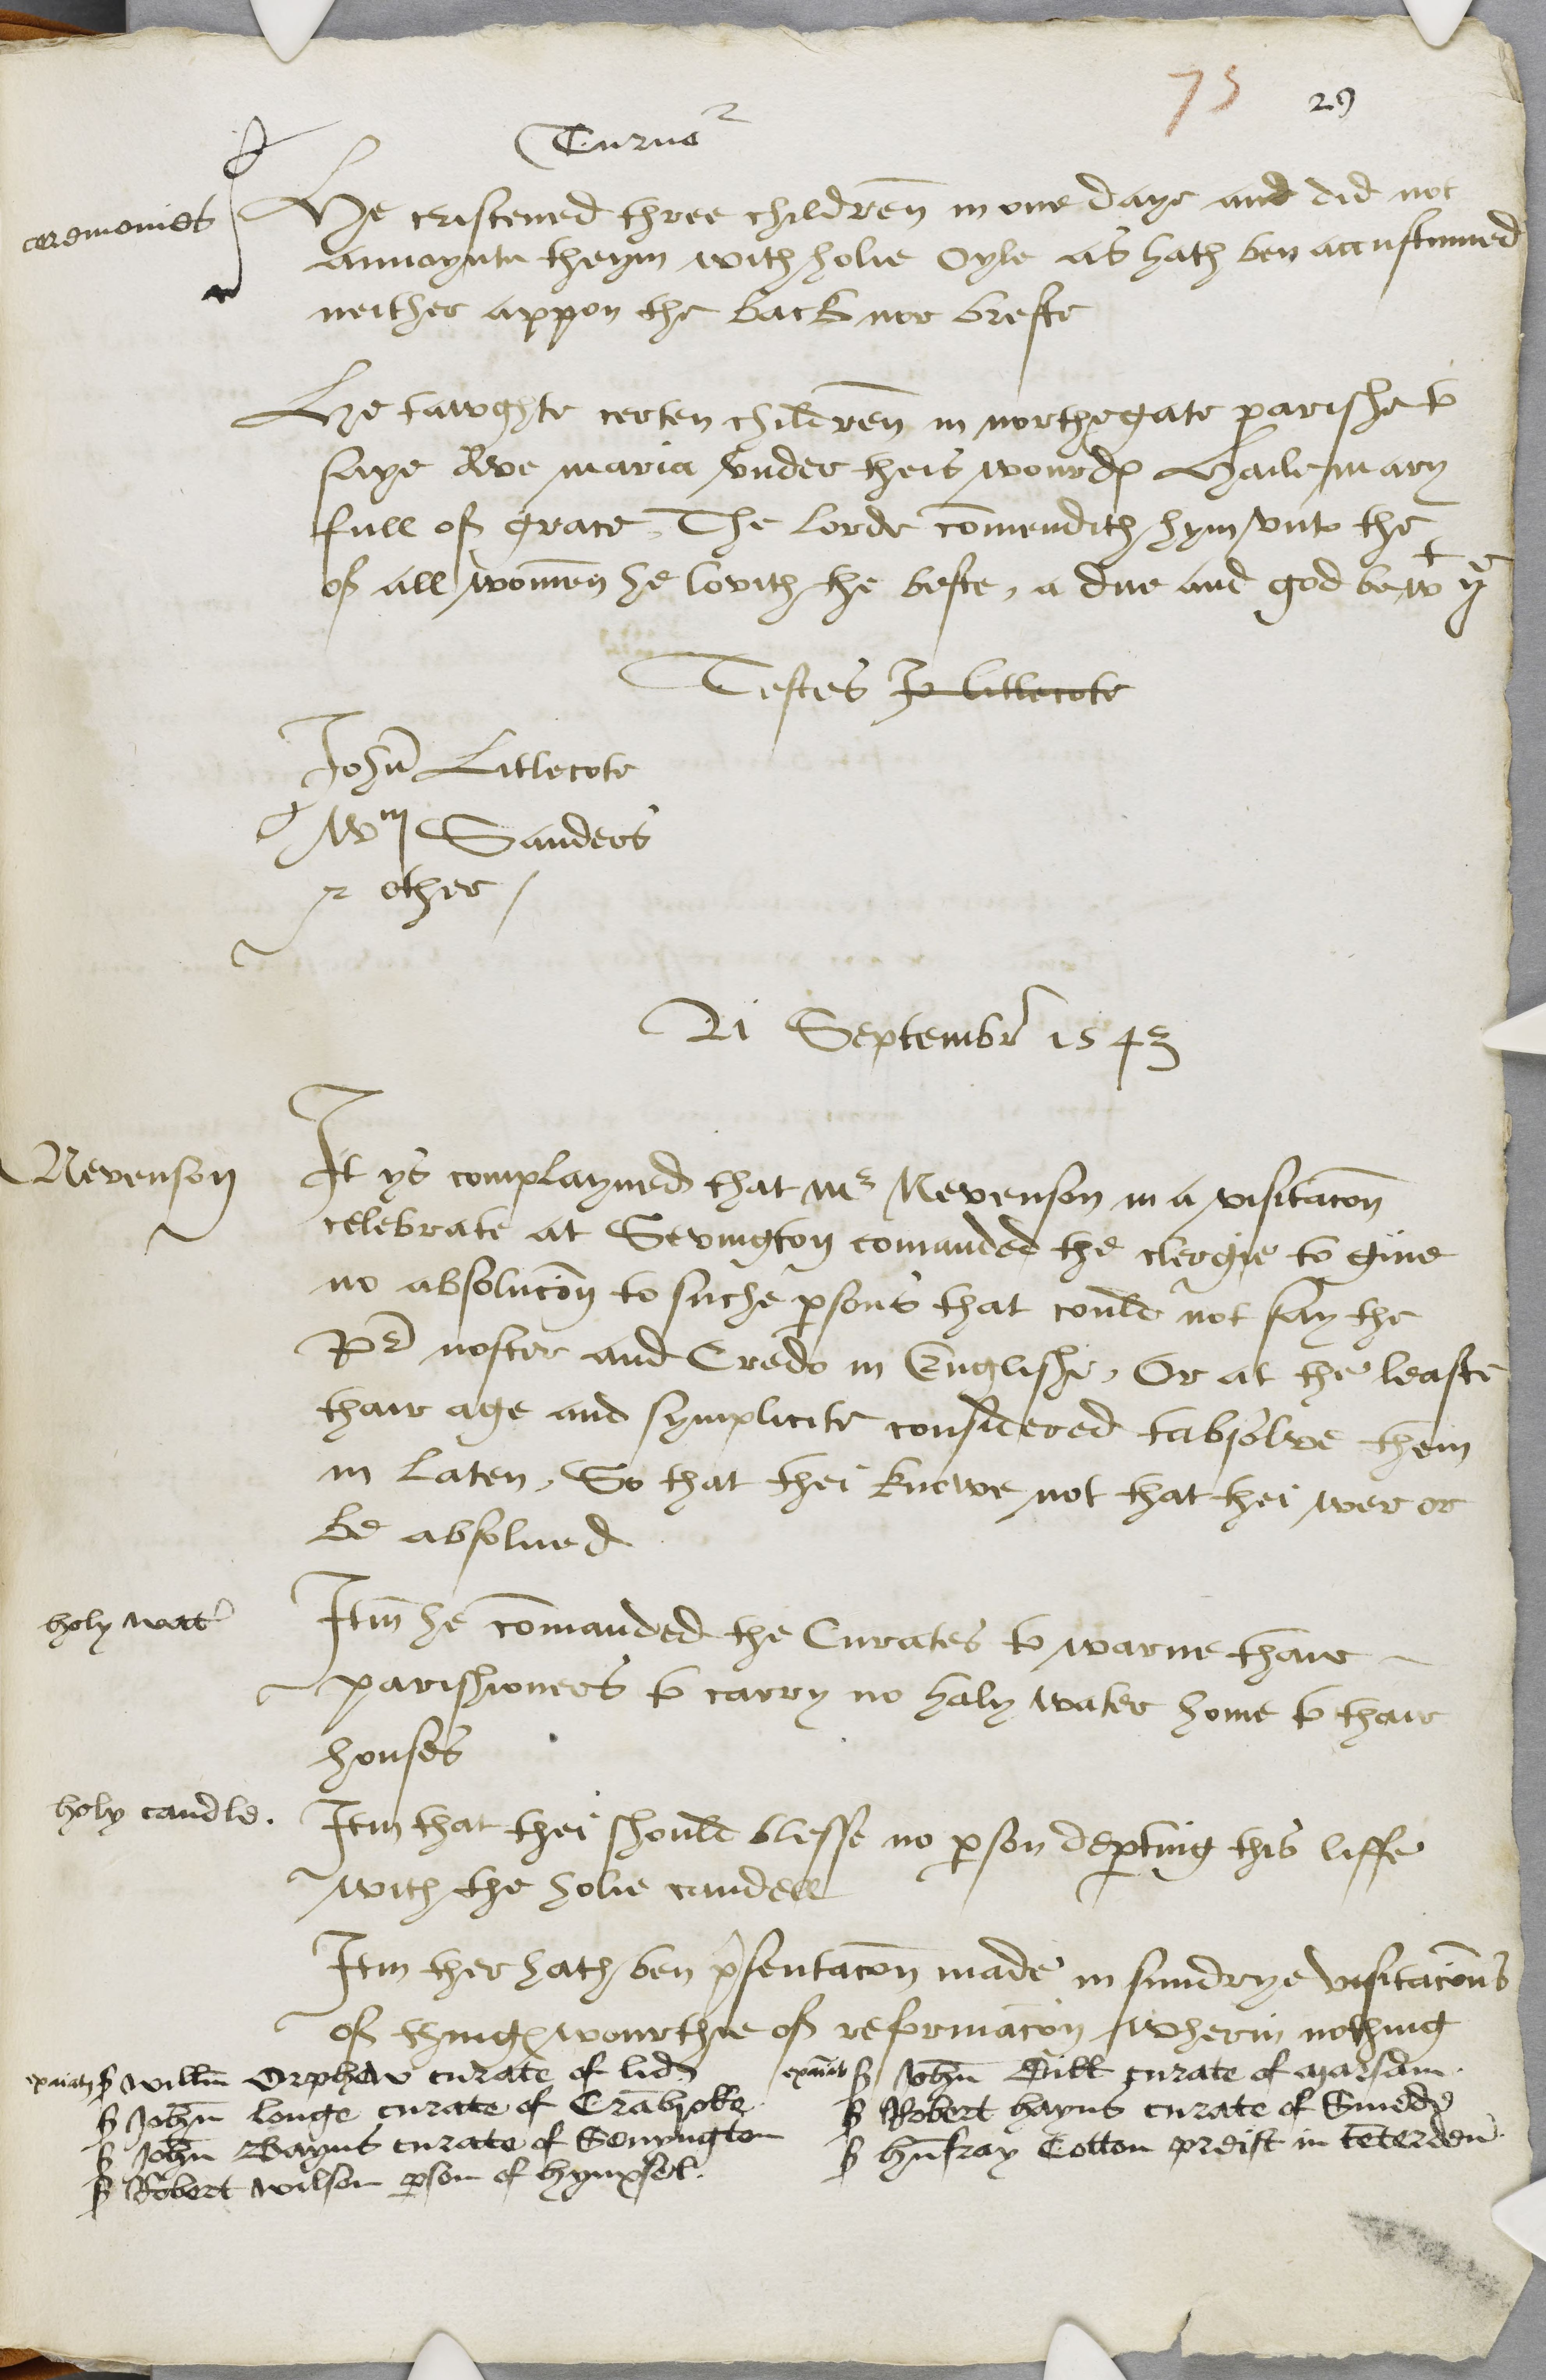 75 29
Turno<sup>r</sup>
ceremonies
He cristened three childreñ in one daye and did not
annoynte theym with holie Oyle as hath ben accustumed
neither appon the back nor breste
He tawghte certen childreñ in northegate parishe to
saye Ave maria vnder theis wourdꝭ Haile mary
full of grace, The lorde cōmendith hym vnto the
of all womeñ he lovith the beste, a due and god be wᵗ yᵉ
Testes Jo litlecote
Joh̄n Litlecote
Wᵐ Sanders
⁊ other /
21 Septembr̄ 1543
Nevenson
It ys complayned that mʳ Nevenson in a visitacōn
celebrate at Sevington comanded the clergie to giue
no absolucōn to suche p̱sons that could not say the
Pr̄ noster and Credo in Englishe, Or at the leaste
thair age and symplicite considered tabsolve them
in laten, So that thei knowe not that thei wer or
be absolued
holy wat̄
Itm̄ he cōmanded the Curates to warne thair
parishioners to carry no haly water home to thair
houses
holy candle.
Itm̄ that thei should blesse no p̱son dep̱ting this liffe
with the holie candell
Itm̄ ther hath ben p̄sentacōn made in sundrye visitacōns
of thingꝭ wourthie of reformacōn wherin nothing
willm̄ Orphew curate of lid
Joh̄n longe curate of Crābroke
Joh̄n Bayns curate of Sevyngton
Robert wilson p̱son of
Joh̄n curate of marsam
Robert hayns curate of Smedꝭ
hūfray Cotton preist in tēterden